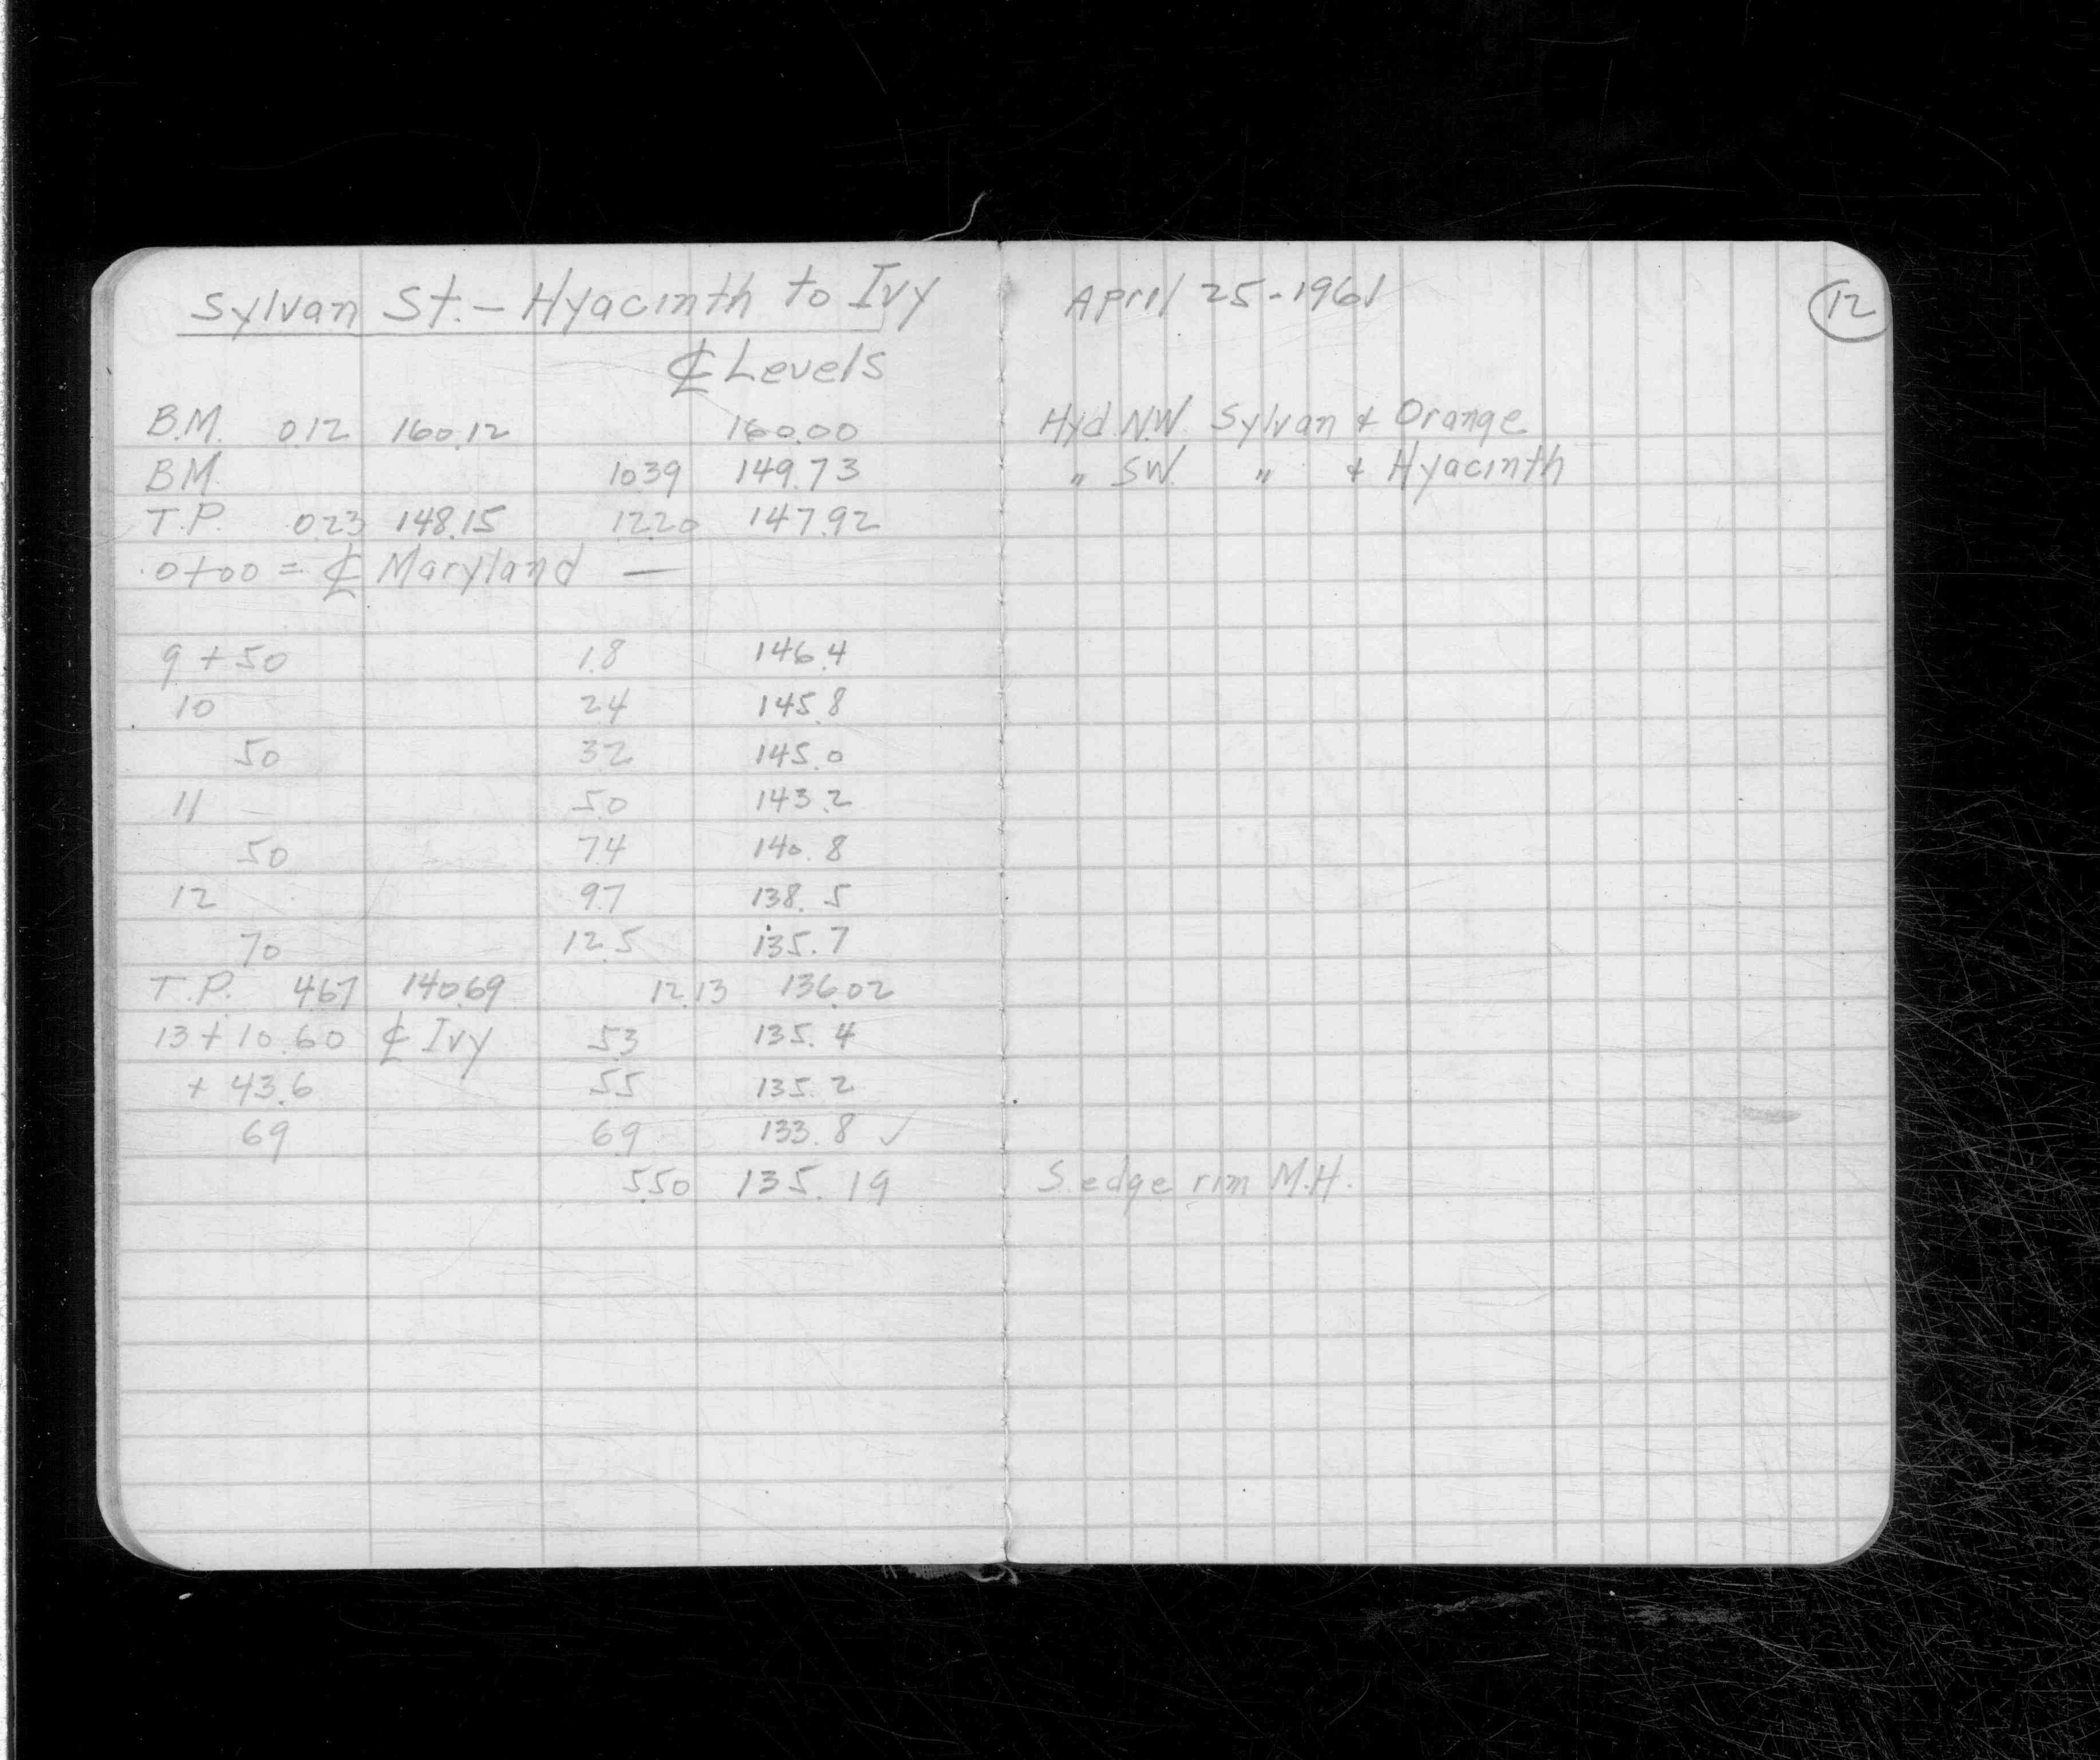 Sylvan St. - Hyacinth to Ivy
℄ Levels
B.M. 0.12 160.12 160.00
B.M. 10.39 149.73
T.P. 0.23 148.15 12.20 147.92
0+00 = ℄ Maryland —
9 + 50 1.8 146.4
10 2.4 145.8
50 3.2 145.0
11 - 5.0 143.2
50 7.4 140.8
12 9.7 138.5
70 12.5 135.7
T.P. 4.67 140.69 12.13 136.02
13 + 10.60 ℄ Ivy 5.3 135.4
+ 43.6 5.5 135.2
69 6.9 133.8 ✓
5.50 135.19
April 25-1961
12
Hyd. N.W. Sylvan & Orange
" SW. " & Hyacinth
S. edge rim M.H.